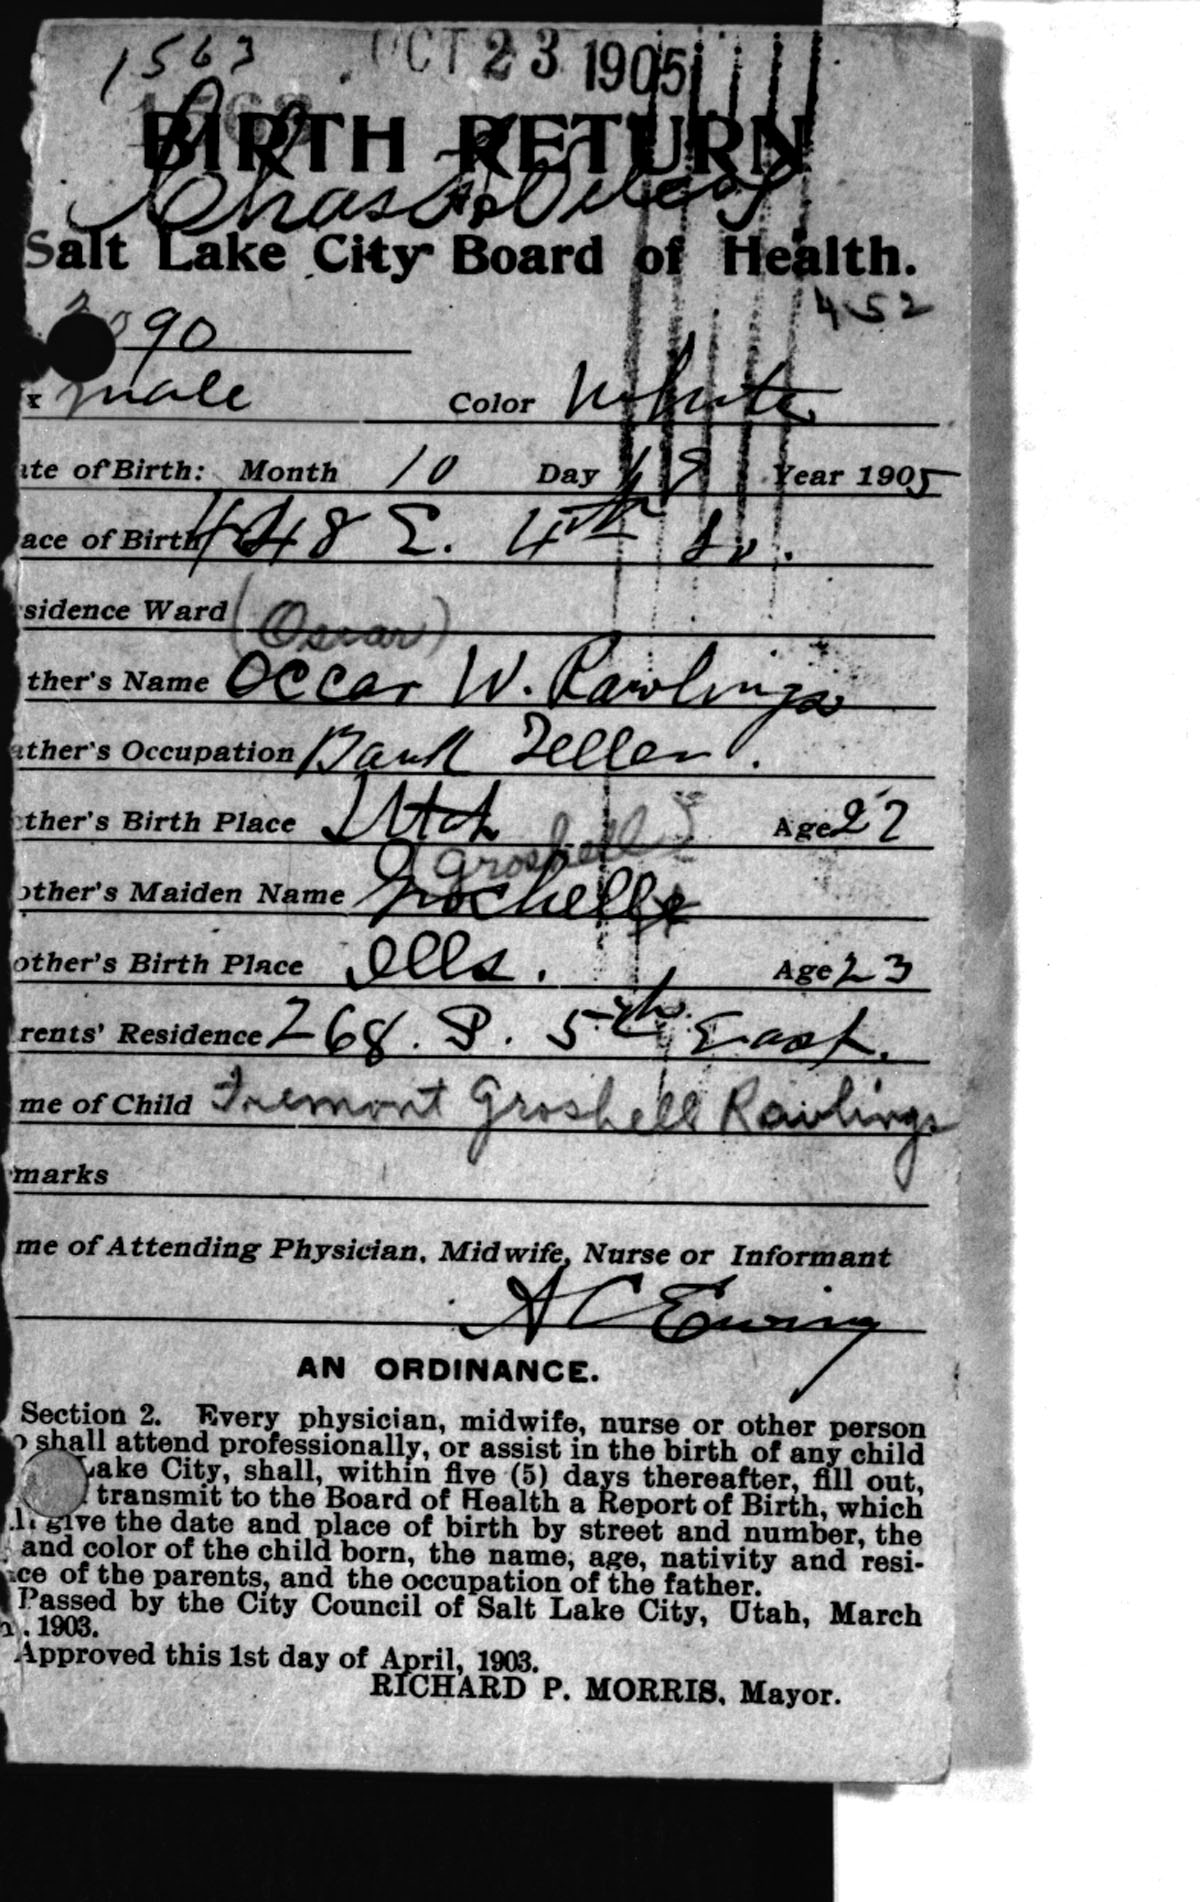 1563 OCT 23 1905
1563
BIRTH RETURN
Chas
TO
Salt Lake City Board of Health.
452
90
x male Color White
ate of Birth: Month 10 Day 18 Year 1905
ace of Birth 448 E. 4th So.
sidence Ward (Oscar)
ther's Name Occar W. Rawlings
ather's Occupation Bank Teller.
ther's Birth Place Utah Age 27
Groshell
other's Maiden Name Grochelle
other's Birth Place Ills. Age 23
rents' Residence 268. S. 5th East.
me of Child Fremont Groshell Rawlings
marks
me of Attending Physician, Midwife, Nurse or Informant
A C Ewing
AN ORDINANCE.
Section 2. Every physician, midwife, nurse or other person
o shall attend professionally, or assist in the birth of any child
Lake City, shall, within five (5) days thereafter, fill out,
transmit to the Board of Health a Report of Birth, which
ll give the date and place of birth by street and number, the
and color of the child born, the name, age, nativity and resi-
ce of the parents, and the occupation of the father.
Passed by the City Council of Salt Lake City, Utah, March
, 1903.
Approved this 1st day of April, 1903.
RICHARD P. MORRIS, Mayor.